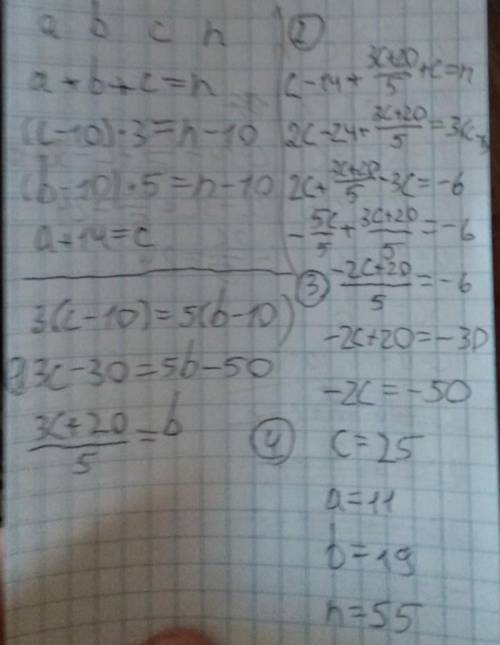 a b c n
a+b+c=n
(c-10)·3=n-10
(b-10)·5=n-10
a+14=c
3(c-10)=5(b-10)
3c-30=5b-50
(3c+20)/5=b
②
c-14+(3c+20)/5+c=n
2c-24+(3c+20)/5=3c
2c+(3c+20)/5-3c=-6
-5c/5+(3c+20)/5=-6
③ (-2c+20)/5=-6
-2c+20=-30
-2c=-50
④ c=25
a=11
b=19
n=55